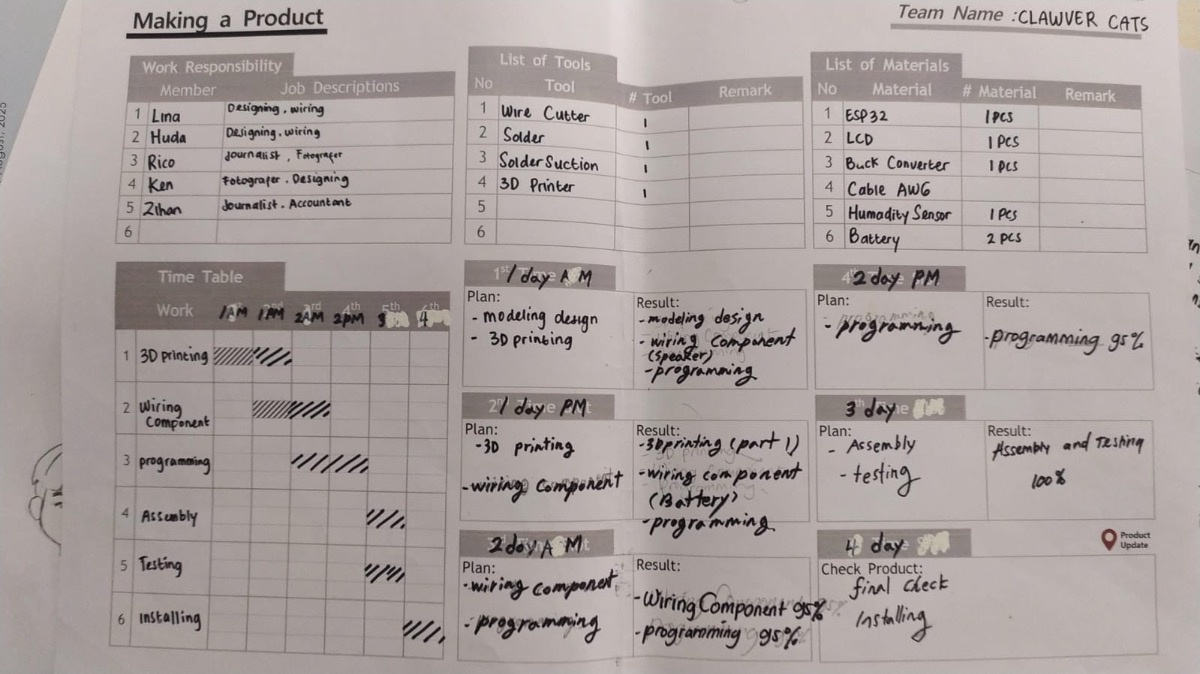 Making a Product
Team Name : CLAWVER CATS
Work Responsibility
Member Job Descriptions
1 Lina Designing. wiring
2 Huda Designing. wiring
3 Rico Journalist, Fotografer
4 Ken Fotografer. Designing
5 Zihan Journalist. Accountant
6
List of Tools
No Tool # Tool Remark
1 Wire Cutter 1
2 Solder 1
3 Solder Suction 1
4 3D Printer 1
5
6
List of Materials
No Material # Material Remark
1 ESP32 1 PCS
2 LCD 1 PCS
3 Buck Converter 1 PCS
4 Cable AWG
5 Humadity Sensor 1 PCS
6 Battery 2 PCS
Time Table
Work 1AM 1PM 2AM 2PM 3 4
1 3D printing
2 Wiring
Component
3 programming
4 Assembly
5 Testing
6 Installing
1 day AM
Plan:
- modeling design
- 3D printing
Result:
- modeling design
- wiring component
(speaker)
- programming
1 day PM
Plan:
-3D printing
-wiring component
Result:
-3D printing (part 1)
-wiring component
(Battery)
-programming
2 day AM
Plan:
-wiring component
-programming
Result:
-Wiring Component 95%
-programming 95%
2 day PM
Plan:
- programming
Result:
-programming 95%
3 day
Plan:
- Assembly
- testing
Result:
Assembly and Testing
100%
4 day
Product
Update
Check Product:
final check
Installing